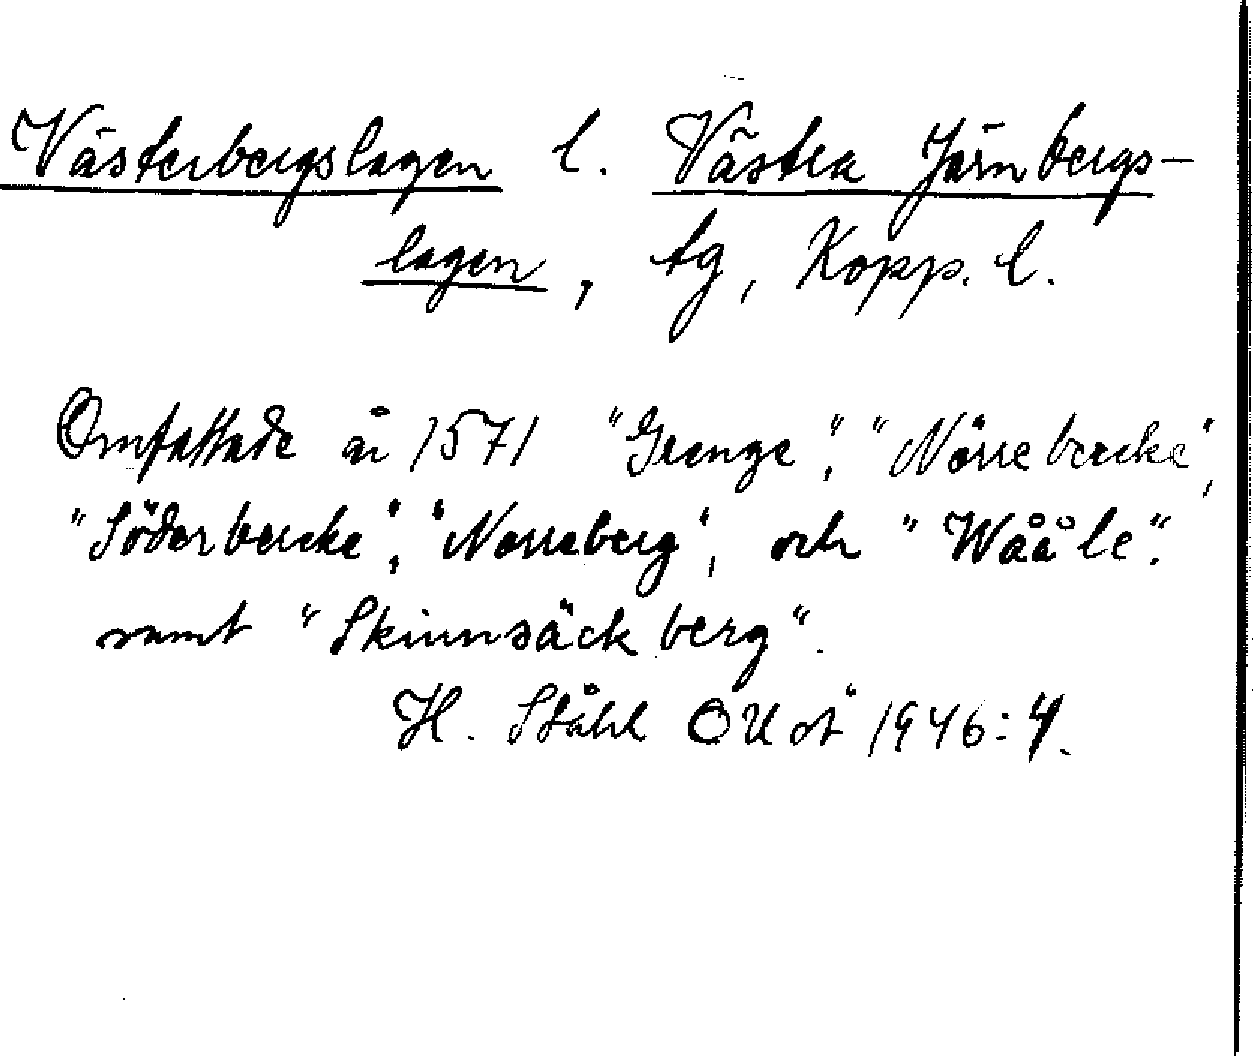 Västerbergslagen l. Västra Järnbergs-
lagen, tg, Kopp. l.
Omfattade år 1571 "Grenge", "Nörrebercke",
"Söderbercke", "Norreberg", och "Wååle".
samt "Skinnsäckberg".
H. Ståhl OUoÅ 1946:4.